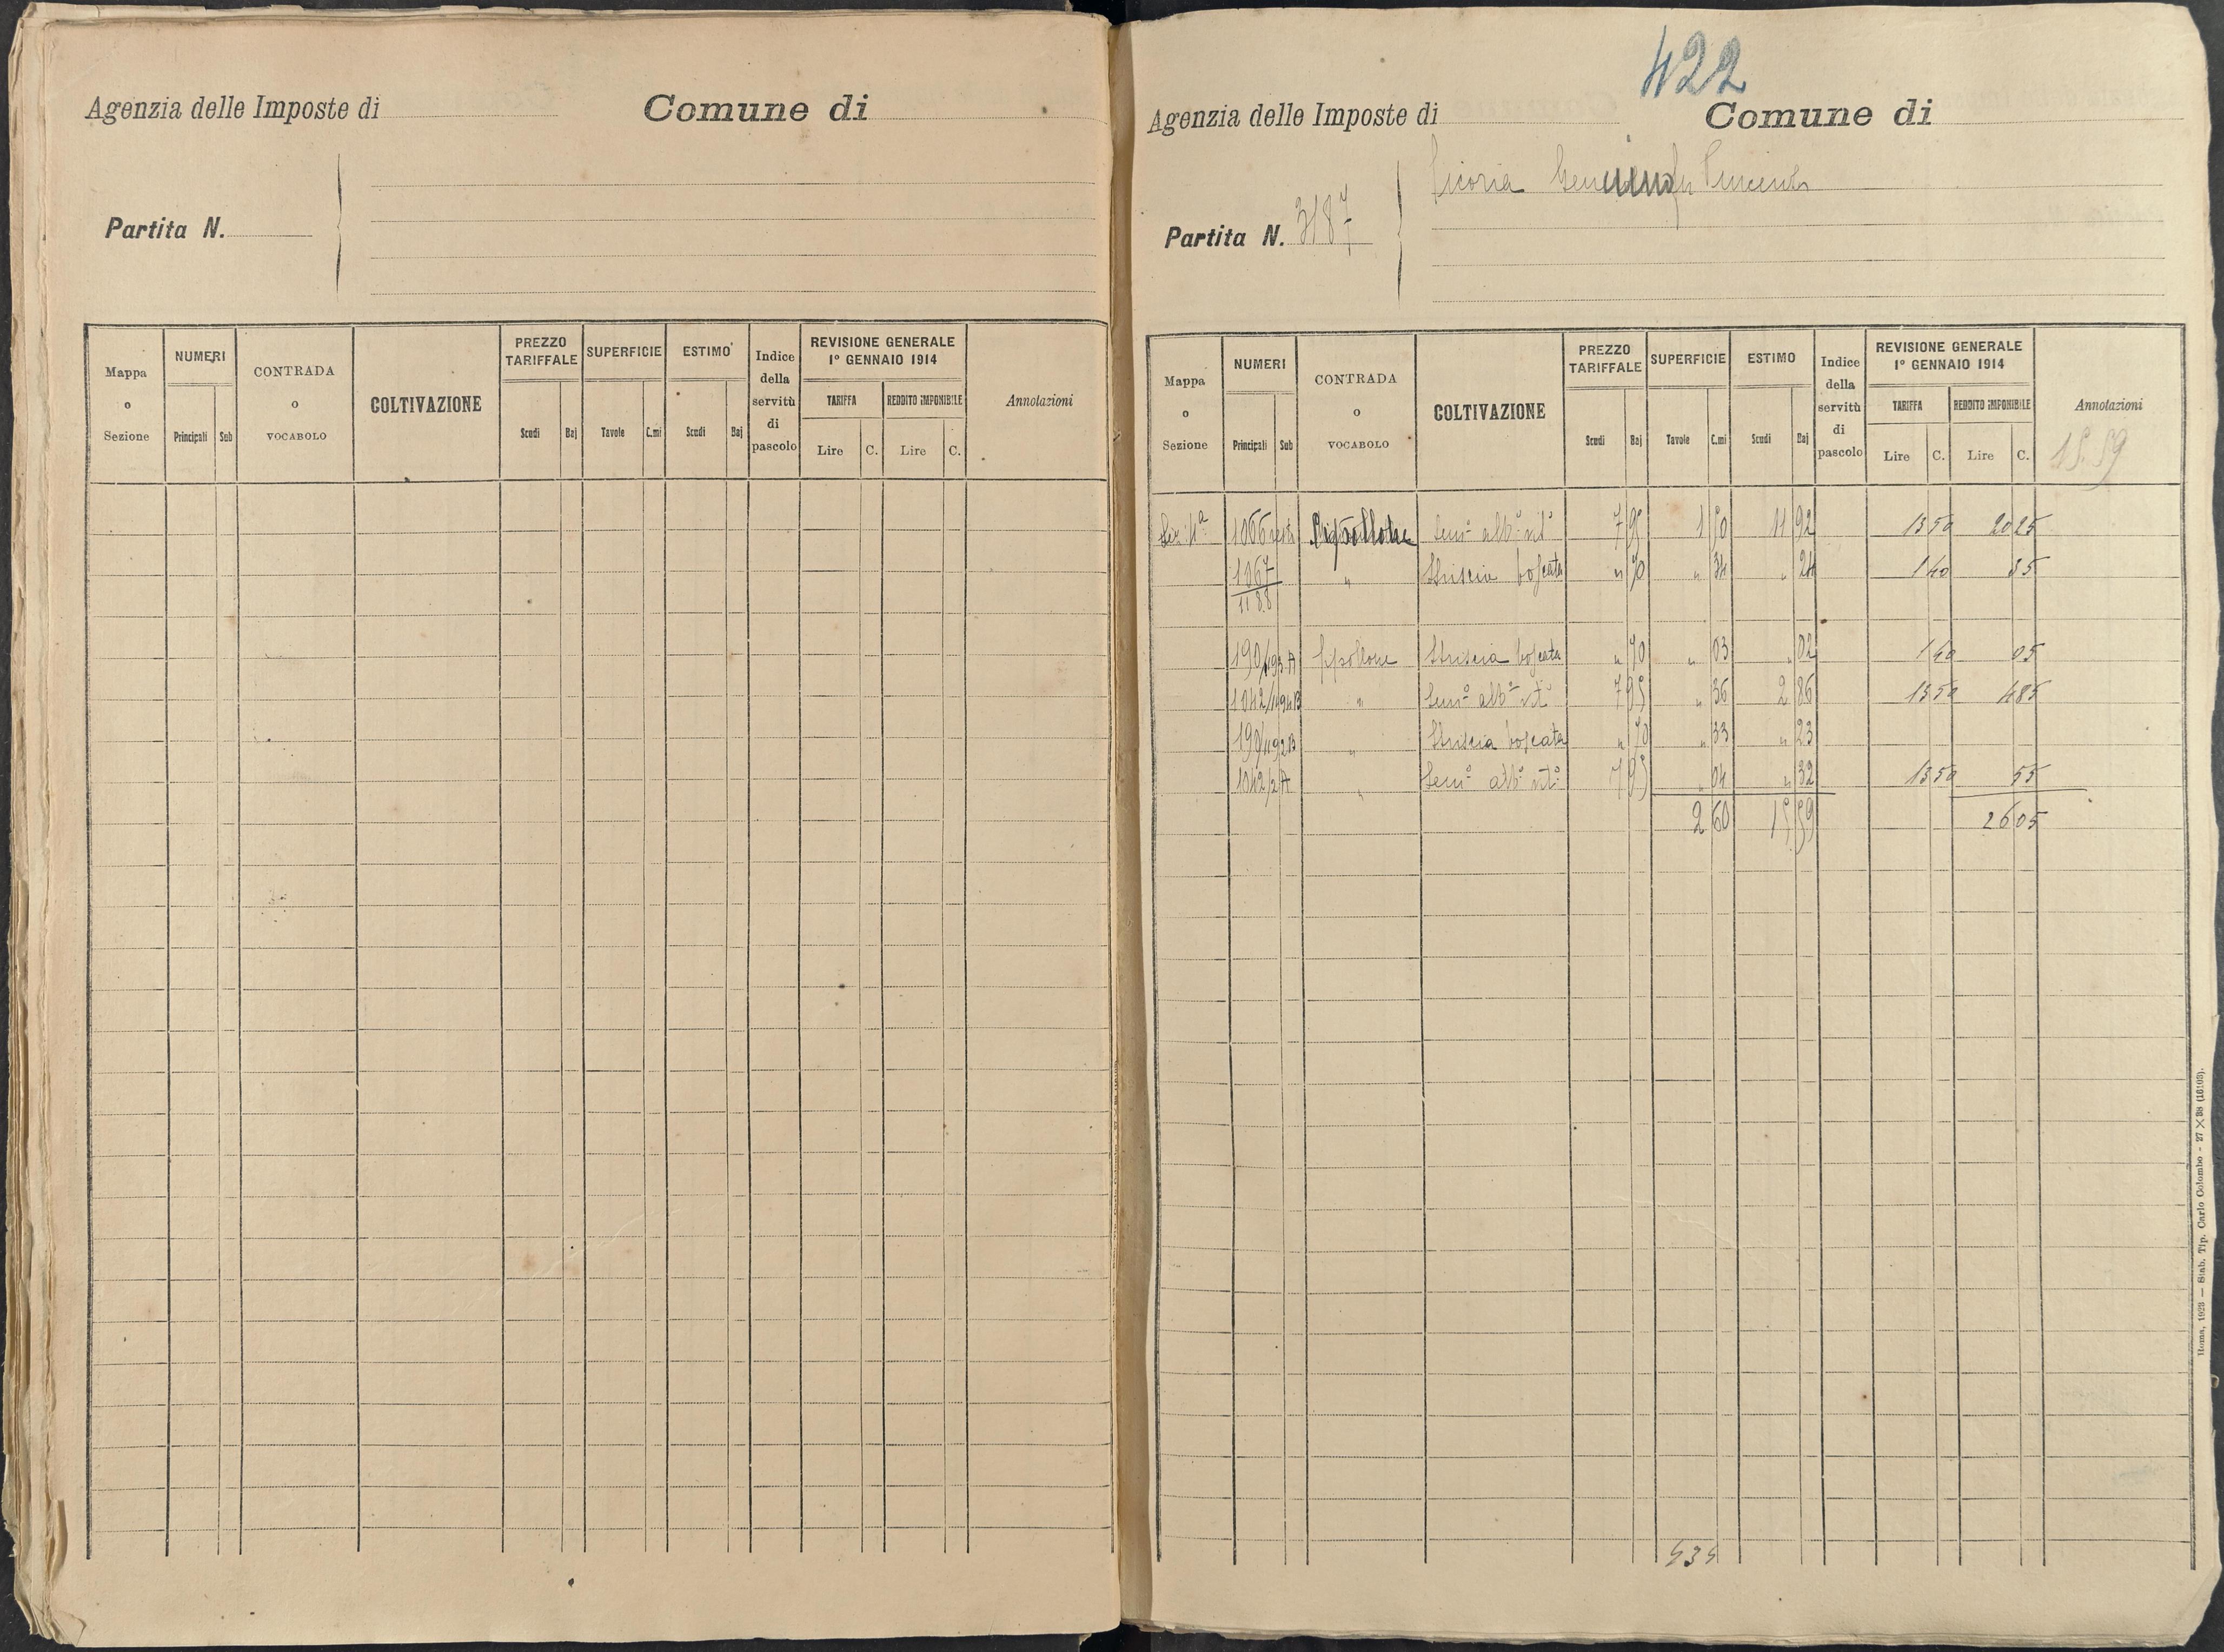 Agenzia delle Imposte di Comune di
Partita N.
Mappa o Sezione
NUMERI
Principali Sub
CONTRADA o VOCABOLO
COLTIVAZIONE
PREZZO TARIFFALE
Scudi Baj
SUPERFICIE
Tavole C.mi
ESTIMO
Scudi Baj
Indice della servitù di pascolo
REVISIONE GENERALE
1º GENNAIO 1914
TARIFFA REDDITO IMPONIBILE
Lire C. Lire C.
Annotazioni
422
Agenzia delle Imposte di Comune di
Partita N. 3187
Mappa o Sezione
NUMERI
Principali Sub
CONTRADA o VOCABOLO
COLTIVAZIONE
PREZZO TARIFFALE
Scudi Baj
SUPERFICIE
Tavole C.mi
ESTIMO
Scudi Baj
Indice della servitù di pascolo
REVISIONE GENERALE
1º GENNAIO 1914
TARIFFA REDDITO IMPONIBILE
Lire C. Lire C.
Annotazioni
15.59
Sez. 4ª 1066 Semº albº vitº 7 95 1 50 11 92 13 50 20 25
1067 " Striscia boscata " 70 " 34 " 24 1 40 35
1188
190/1193 A Striscia boscata " 70 " 03 " 02 1 40 05
1042/1194 B " Semº albº vitº 7 95 " 36 2 86 13 50 4 85
190/1192 B " Striscia boscata " 70 " 33 " 23
1042/2 A " Semº albº vitº 7 95 " 04 " 32 13 50 55
2 60 15 59 26 05
535
Roma, 1923 — Stab. Tip. Carlo Colombo - 27 × 38 (16103).